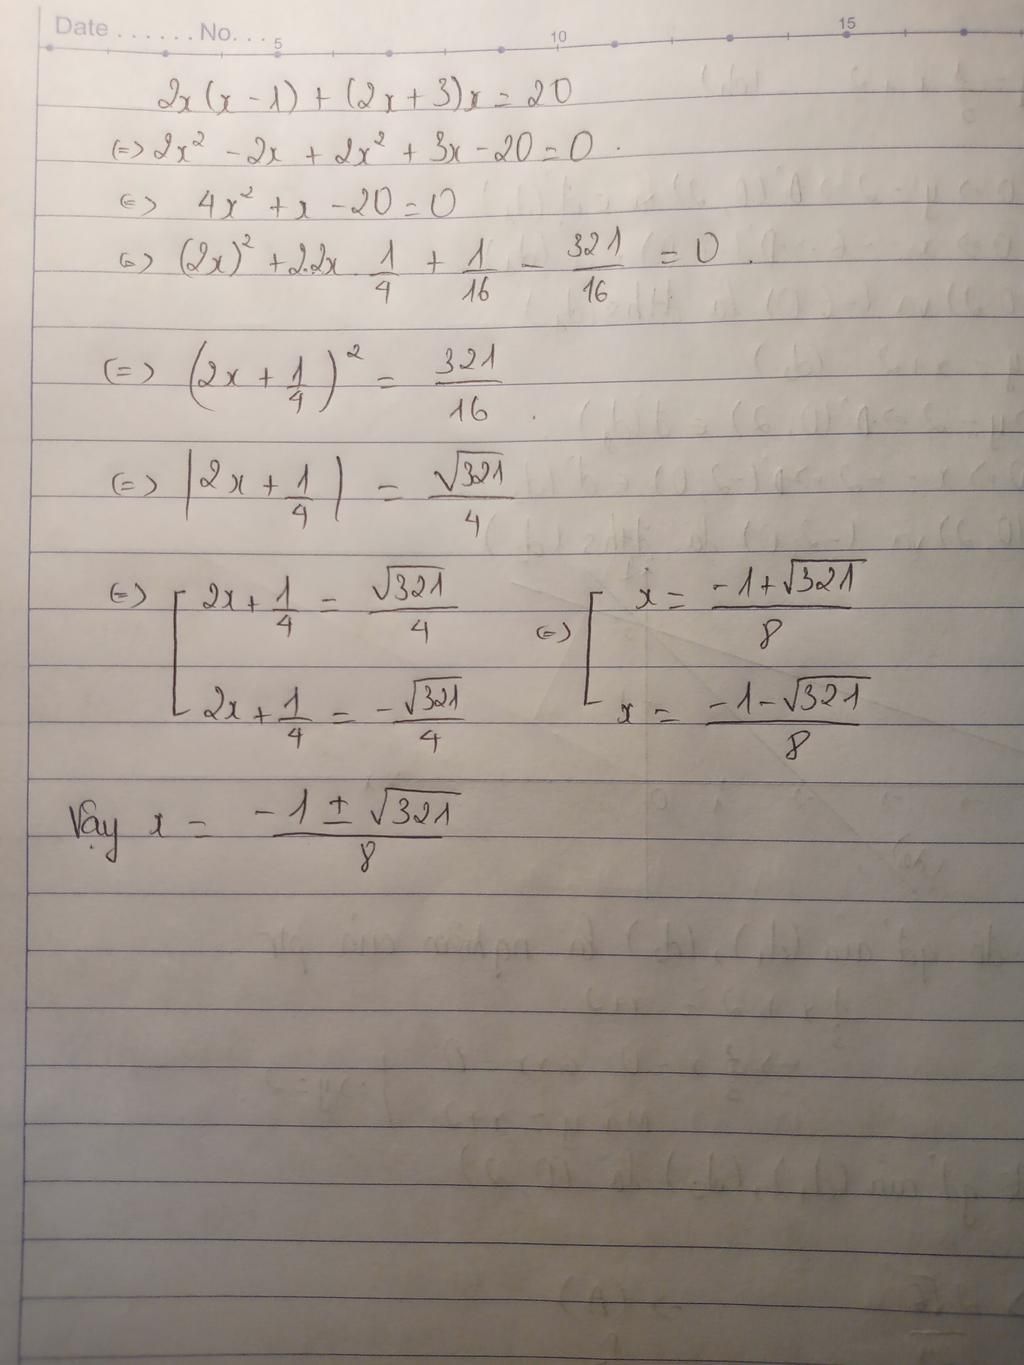 Date ...... No. ... 5 10 15
2x(x - 1) + (2x + 3)x = 20
(=) 2x² - 2x + 2x² + 3x - 20 = 0.
(=) 4x² + x - 20 = 0
(=) (2x)² + 2.2x 1/4 + 1/16 - 321/16 = 0.
(=) (2x + 1/4)² = 321/16.
(=) |2x + 1/4| = √321/4
(=) [ 2x + 1/4 = √321/4 (=) [ x = (-1 + √321)/8
2x + 1/4 = -√321/4 x = (-1 - √321)/8
Vậy x = (-1 ± √321)/8